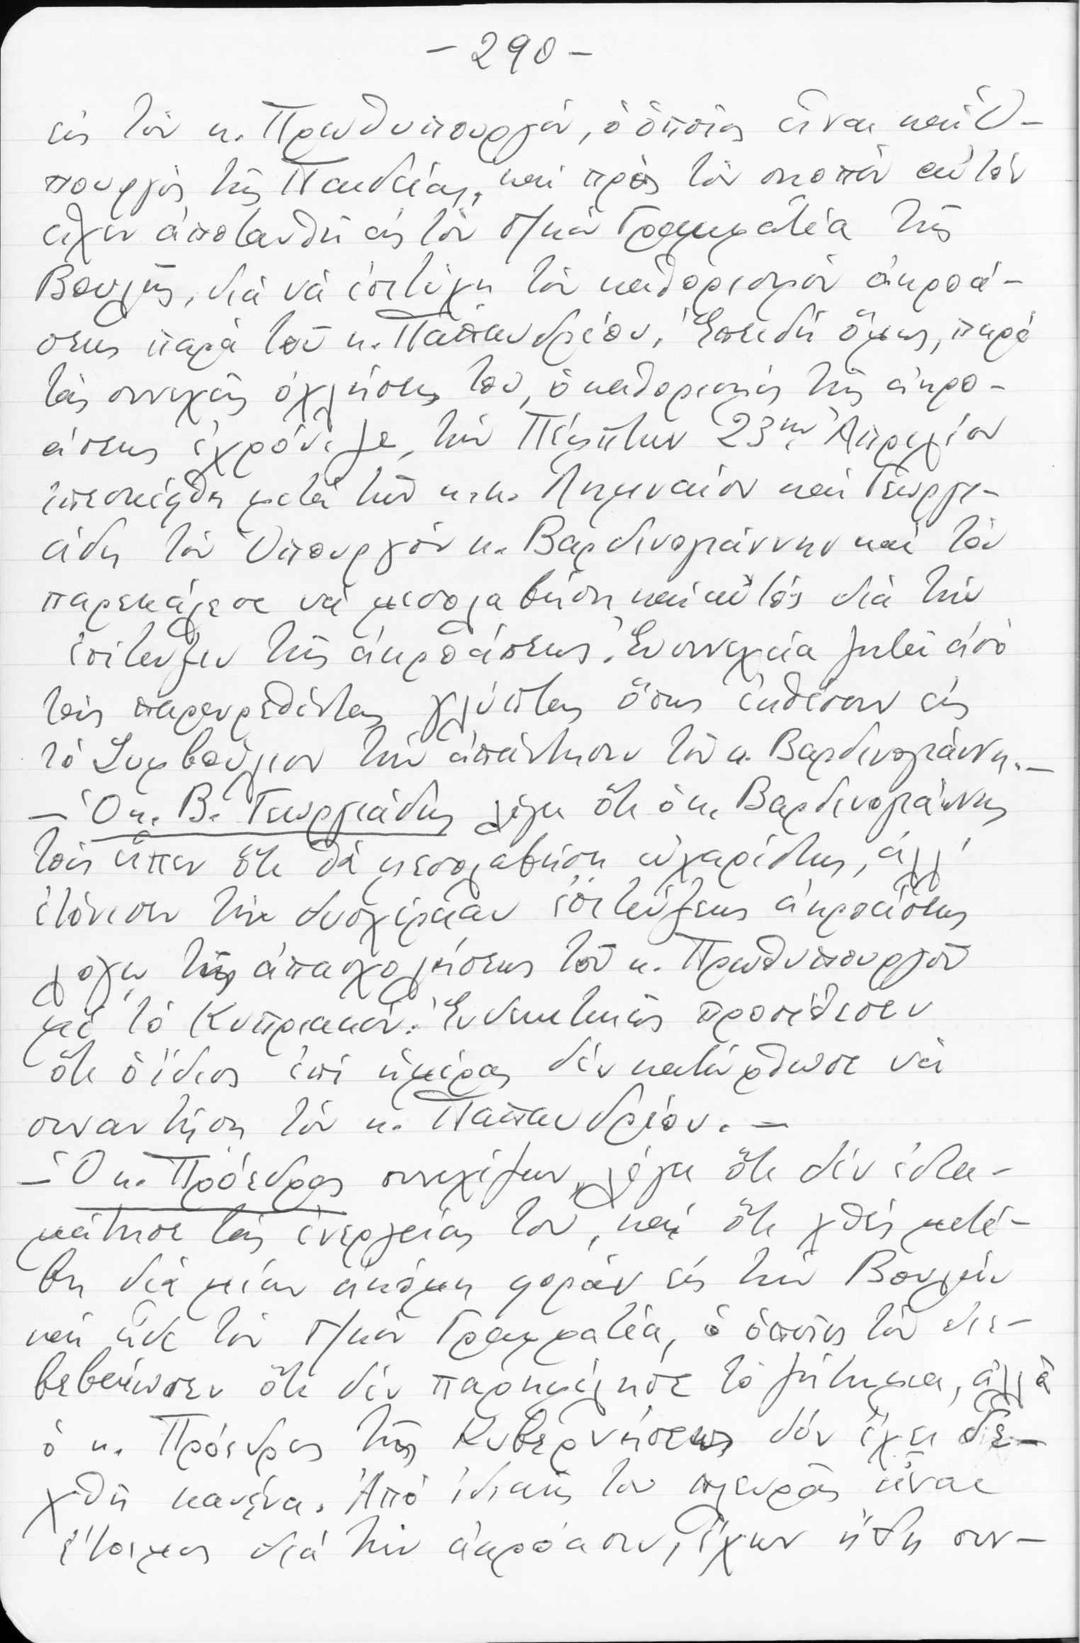 -290-
εἰς τὸν κ. Πρωθυπουργόν, ὁ ὁποῖος εἶναι καὶ Ὑ-
πουργὸς τῆς Παιδείας, καὶ πρὸς τὸν σκοπὸν αὐτὸν
εἶχεν ἀποτανθῆ εἰς τὸν Γ/κὸν Γραμματέα τῆς
Βουλῆς, διὰ νὰ ἐπιτύχη τὸν καθορισμὸν ἀκροά-
σεως παρὰ τοῦ κ. Παπανδρέου. Ἐπειδὴ ὅμως, παρὰ
τὰς συνεχεῖς ὀχλήσεις του, ὁ καθορισμὸς τῆς ἀκρο-
άσεως ἐχρόνιζε, τὴν Πέμπτην 23ην Ἀπριλίου
ἐπεσκέφθη μετὰ τῶν κ.κ. Λημναίου καὶ Γεωργι-
άδη τὸν Ὑπουργὸν κ. Βαρδινογιάννην καὶ τὸν
παρεκάλεσε νὰ μεσολαβήση καὶ αὐτὸς διὰ τὴν
ἐπίτευξιν τῆς ἀκροάσεως. Ἐν συνεχεία ζητεῖ ἀπὸ
τοὺς παρευρεθέντας γλύπτας ὅπως ἐκθέσουν εἰς
τὸ Συμβούλιον τὴν ἀπάντησιν τοῦ κ. Βαρδινογιάννη.-
- Ὁ κ. Β. Γεωργιάδης λέγει ὅτι ὁ κ. Βαρδινογιάννης
τοὺς εἶπεν ὅτι θὰ μεσολαβήση εὐχαρίστως, ἀλλ'
ἐτόνισεν τὴν δυσχέρειαν ἐπιτεύξεως ἀκροάσεως
λόγω τῆς ἀπασχολήσεως τοῦ κ. Πρωθυπουργοῦ
μὲ τὸ Κυπριακόν. Ἐνδεικτικῶς προσέθεσεν
ὅτι ὁ ἴδιος ἐπὶ ἡμέρας δὲν κατώρθωσε νὰ
συναντήση τὸν κ. Παπανδρέου.-
- Ὁ κ. Πρόεδρος συνεχίζων, λέγει ὅτι δὲν ἐστα-
μάτησε τὰς ἐνεργείας του, καὶ ὅτι χθὲς μετέ-
βη διὰ μίαν ἀκόμη φορὰν εἰς τὴν Βουλὴν
καὶ εἶδε τὸν Γ/κὸν Γραμματέα, ὁ ὁποῖος τὸν διε-
βεβαίωσεν ὅτι δὲν παρημέλησε τὸ ζήτημα, ἀλλὰ
ὁ κ. Πρόεδρος τῆς Κυβερνήσεως δὲν ἔχει δε-
χθῆ κανένα. Ἀπὸ ἰδικῆς του πλευρᾶς εἶναι
ἕτοιμος διὰ τὴν ἀκρόασιν, ἔχων ἤδη συν-